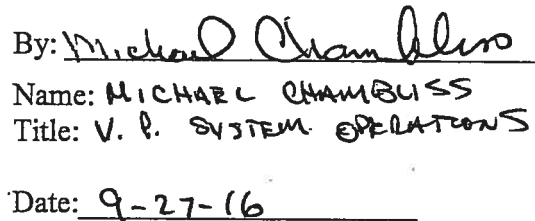 By: Michael Chambliss
Name: MICHAEL CHAMBLISS
Title: V. P. SYSTEM OPERATIONS
Date: 9-27-16